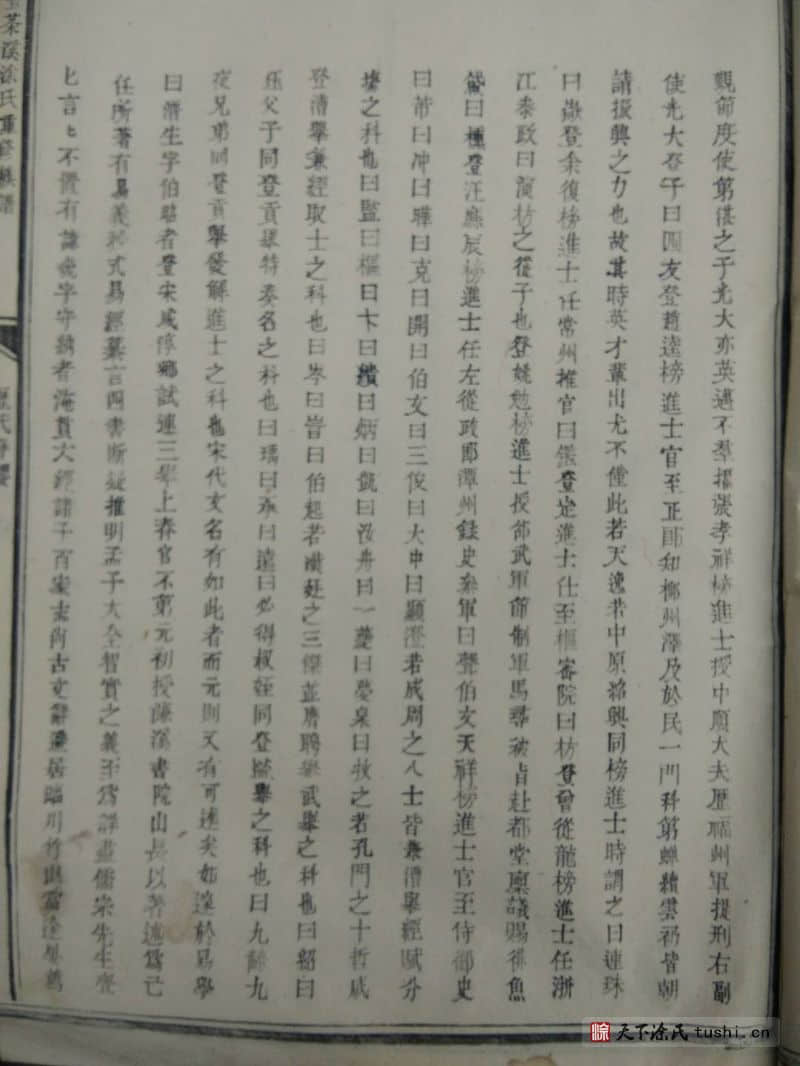 觀節度使第諶之子光大亦英邁不羣擢張孝祥榜進士授中順大夫歷福州軍提刑右副
使光大登子曰四友登趙逵榜進士官至正郎知郴州澤及於民一門科第蟬續雲礽皆朝
請振興之力也故其時英才輩出尤不僅此若天逸若中原紹興同榜進士時謂之曰連珠
曰嶽登余復榜進士任常州推官曰鑑登定進士仕至樞審院曰枋登曾從龍榜進士任浙
江泰政曰演枋之從子也登姚勉榜進士授節武軍節制軍馬尋被旨赴都堂禀議賜緋魚
袋曰種登汪應辰榜進士任左從政郎潭州錄史叅軍曰聲伯文天祥榜進士官至侍御史
曰芾曰冲曰曄曰克曰開曰伯文曰三俊曰大中曰顯澄若成周之八士皆兼漕舉經賦分
塲之科也曰監曰樞曰卞曰纘曰炳曰凱曰汝舟曰一夔曰夢臯曰牧之若孔門之十哲咸
登清舉兼經取士之科也曰岑曰訔曰伯起若漢廷之三傑並膺聘舉武舉之科也曰韶曰
父子同登貢舉特奏名之科也曰璚曰 曰遠曰必得叔姪同登 舉之科也曰九 九
夜兄弟同登貢舉發解進士之科也宋代文名有如此者而元則又有可述矣如遠於易學
曰溍生字伯 者登宋咸淳鄉試連三舉上春官不第元初授 溪書院山長以著述爲己
任所著有易義矜式易經纂言四書斷疑推明孟子大全智實之義至爲詳盡儒宗先生
言 不置有謙 字守 者淹貫六經諸子百家 尚古文辭 居臨川竹
茶溪涂氏重修族譜
天下涂氏 tushi.cn